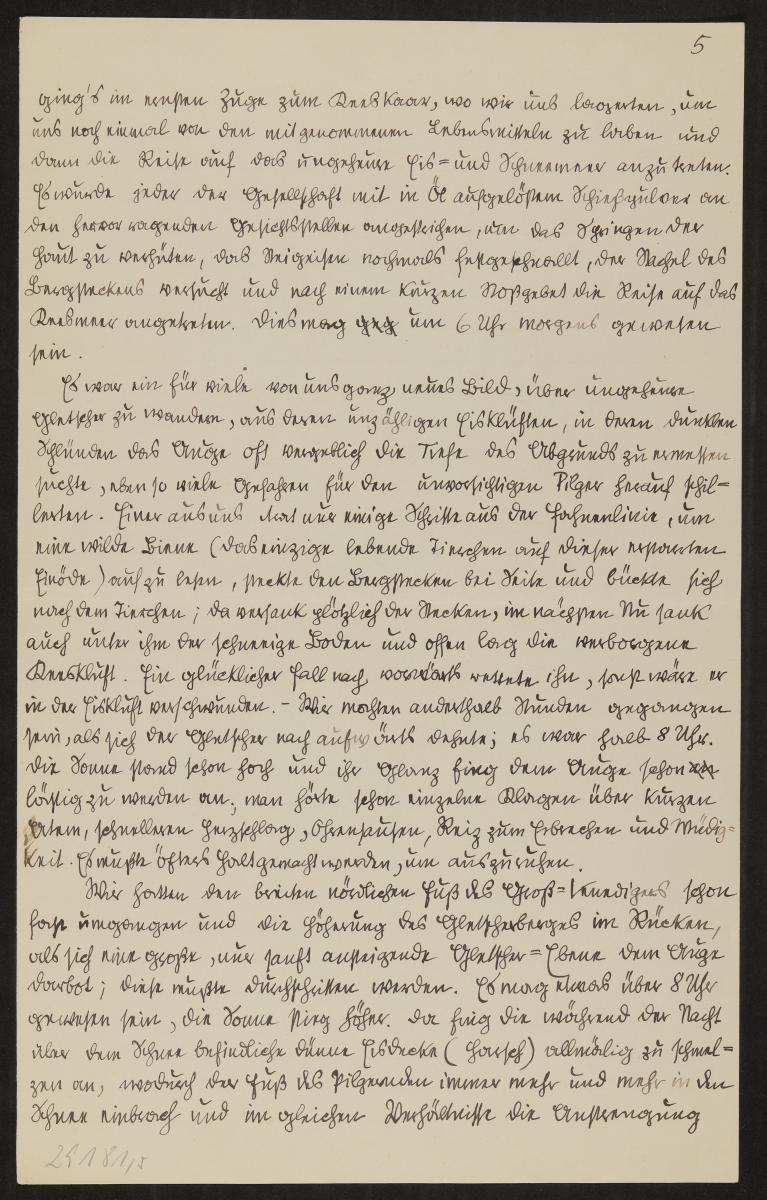 5
ging's im ernsten Zuge zum Keeskaar, wo wir uns lagerten, um
uns noch einmal von den mitgenommenen Lebensmitteln zu laben und
dann die Reise auf das ungeheure Eis= und Schneemeer anzutreten.
Es wurde jeder der Gesellschaft mit in Öl aufgelöstem Schießpulver an
den hervorragenden Gesichtsstellen angestrichen, um das Springen der
Haut zu verhüten, das Steigeisen nochmals festgeschnallt, der Stachel des
Bergsteckens versucht und nach einem kurzen Stoßgebet die Reise auf das
Keesmeer angetreten. Dies mag geg um 6 Uhr morgens gewesen
sein.
Es war ein für viele von uns ganz neues Bild, über ungeheure
Gletscher zu wandern, aus deren unzähligen Eisklüften, in deren dunklen
Schlünden das Auge oft vergeblich die Tiefe des Abgrunds zu ermessen
suchte, ebenso viele Gefahren für den unvorsichtigen Pilger herauf schil=
lerten. Einer aus uns trat nur einige Schritte aus der Fahnenlinie, um
eine wilde Biene (das einzige lebende Tierchen auf dieser erstarrten
Einöde) aufzulesen, steckte den Bergstecken bei Seite und bückte sich
nach dem Tierchen; da versank plötzlich der Stecken, im nächsten Nu sank
auch unter ihm der schneeige Boden und offen lag die verborgene
Keeskluft. Ein glücklicher Fall nach vorwärts rettete ihn, sonst wäre er
in der Eiskluft verschwunden. - Wir mochten anderthalb Stunden gegangen
sein, als sich der Gletscher nach aufwärts dehnte; es war halb 8 Uhr.
Die Sonne stand schon hoch und ihr Glanz fing dem Auge schon an
lästig zu werden an; man hörte schon einzelne Klagen über kurzen
Atem, schnelleren Herzschlag, Ohrensausen, Reiz zum Erbrechen und Müdig=
keit. Es mußte öfters Halt gemacht werden, um auszuruhen.
Wir hatten den breiten nördlichen Fuß des Groß=Venedigers schon
fast umgangen und die Höherung des Gletscherberges im Rücken,
als sich eine große, nur sanft ansteigende Gletscher=Ebene dem Auge
darbot; diese mußte durchschritten werden. Es mag etwas über 8 Uhr
gewesen sein, die Sonne stieg höher. Da fing die während der Nacht
über dem Schnee befindliche dünne Eisdecke (Harsch) allmälig zu schmel=
zen an, wodurch der Fuß des Pilgernden immer mehr und mehr in den
Schnee einbrach und im gleichen Verhältnisse die Anstrengung